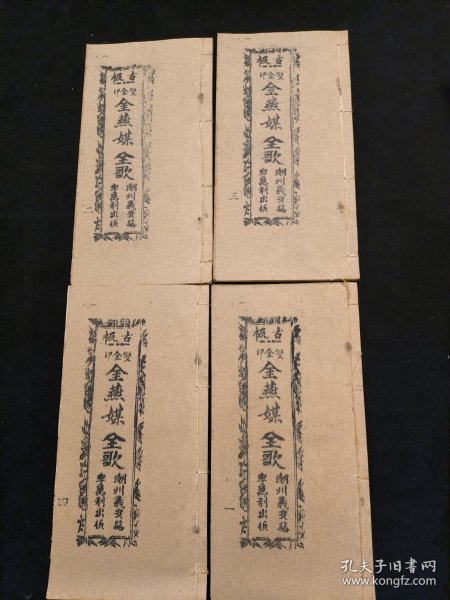 古板
雙金印
金燕媒全歌
潮州義安路
李萬利出版
二
古板
雙金印
金燕媒全歌
潮州義安路
李萬利出版
三
古板
雙金印
金燕媒全歌
潮州義安路
李萬利出版
四
古板
雙金印
金燕媒全歌
潮州義安路
李萬利出版
一
孔夫子旧书网
www.kongfz.com